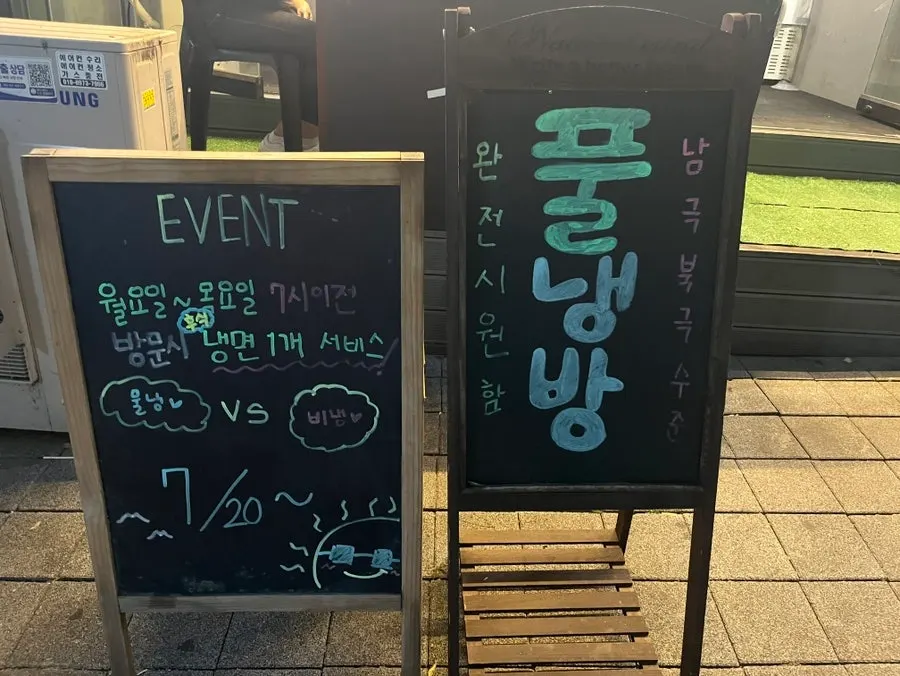 에어컨수리
에어컨청소
가스충전
상담
UNG
EVENT
월요일~목요일 7시이전
방문시 후식 냉면 1개 서비스
물냉♡ vs 비냉♡
7/20~
풀냉방
완전시원함
남극북극수준